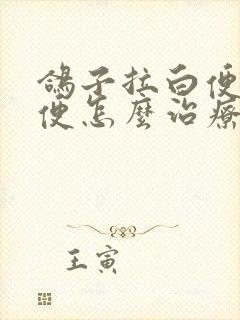 鴿子拉白便
便怎麼治療
王寅